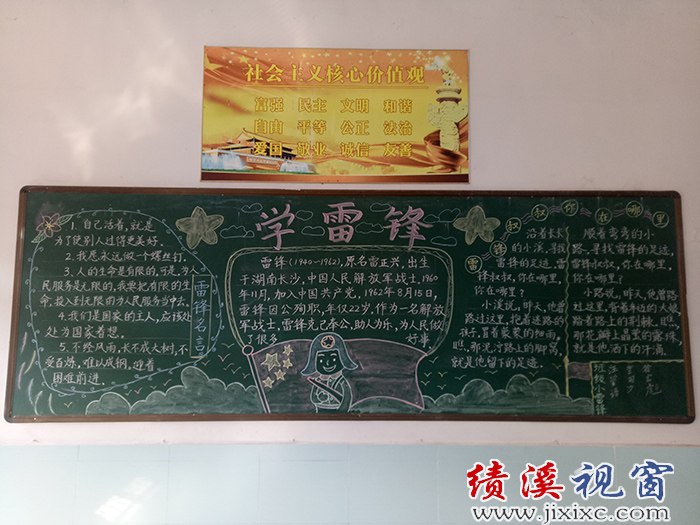 社会主义核心价值观
富强 民主 文明 和谐
自由 平等 公正 法治
爱国 敬业 诚信 友善
学雷锋
1. 自己活着,就是
为了使别人过得更美好。
2. 我愿永远做一个螺丝钉。
3. 人的生命是有限的,可是,为人
民服务是无限的,我要把有限的生
命,投入到无限的为人民服务当中去。
4. 我们是国家的主人,应该处
处为国家着想。
5. 不经风雨,长不成大树,不
受百炼,难以成钢。迎着
困难前进。
雷锋名言
雷锋(1940-1962),原名雷正兴,出生
于湖南长沙,中国人民解放军战士,1960
年11月,加入中国共产党,1962年8月15日,
雷锋因公殉职,年仅22岁。作为一名解放
军战士,雷锋克己奉公,助人为乐,为人民做
了很多 好事。
雷锋叔叔你在哪里
沿着长长
的小溪,寻找
雷锋的足迹,雷
锋叔叔,你在哪里,
你在哪里?
小溪说,昨天,他曾
路过这里,抱着迷路的
孩子,冒着蒙蒙的细雨,
瞧,那泥泞路上的脚窝,
就是他留下的足迹。
顺着弯弯的小
路,寻找雷锋的足迹,
雷锋叔叔,你在哪里,
你在哪里?
小路说,昨天,他曾路
过这里,背着年迈的大娘,
踏着路上的荆棘,瞧,
那花瓣上晶莹的露珠,
就是他洒下的汗滴。
班级小雷锋
绩溪视窗
www.jixixc.com